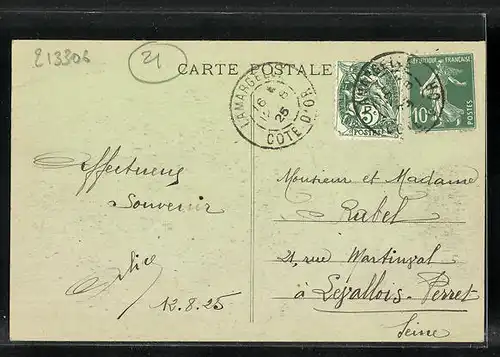 213306
21
CARTE POSTALE
LAMARGELLE
16
8
25
COTE D'OR
5c
POSTES
REPUBLIQUE FRANÇAISE
10c
POSTES
Affectueux
Souvenir
Alice
12.8.25
Monsieur et Madame
Rabel
21, rue Martinval
à Levallois-Perret
Seine